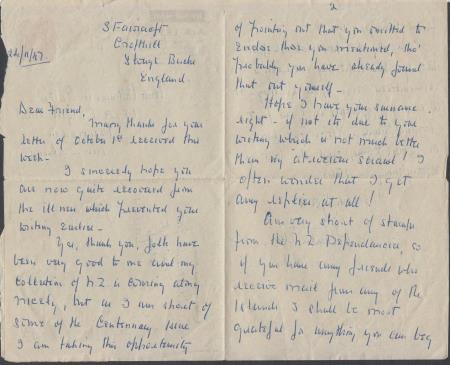 24/11/47
Crofthill
Slough Bucks
England.
Dear Friend,
Many thanks for your
letter of October 1st received this
week.
I sincerely hope you
are now quite recovered from
the illness which prevented your
writing earlier.
Yes, thank you, folk have
been very good to me and my
collection of N.Z. is coming along
nicely, but as I am short of
some of the Centennary Issue
I am taking this opportunity
2
of pointing out that you omitted to
enclose those you mentioned, tho'
probably you have already found
that out yourself.
Hope I have your surname
right - if not its due to your
writing which is not much better
than my atrocious scrawl! I
often wonder that I get
any replies at all!
Am very short of stamps
from the N.Z. Dependancies, so
if you have any friends who
receive mail from any of the
Islands I shall be most
grateful for anything you can beg